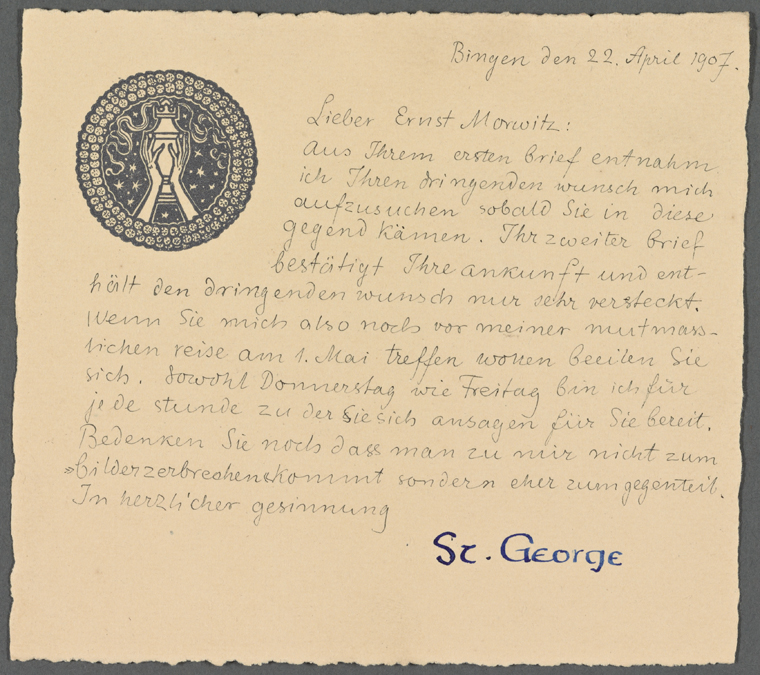 Bingen den 22. April 1907.
Lieber Ernst Morwitz:
aus Ihrem ersten brief entnahm
ich Ihren dringenden wunsch mich
aufzusuchen sobald Sie in diese
gegend kämen. Ihr zweiter brief
bestätigt Ihre ankunft und ent-
hält den dringenden wunsch nur sehr versteckt.
Wenn Sie mich also noch vor meiner mutmass-
lichen reise am 1. Mai treffen wollen beeilen Sie
sich. Sowohl Donnerstag wie Freitag bin ich für
jede stunde zu der Sie sich ansagen für Sie bereit.
Bedenken Sie noch dass man zu mir nicht zum
»bilderzerbrechens kommt sondern eher zum gegenteil.
In herzlicher gesinnung
St. George